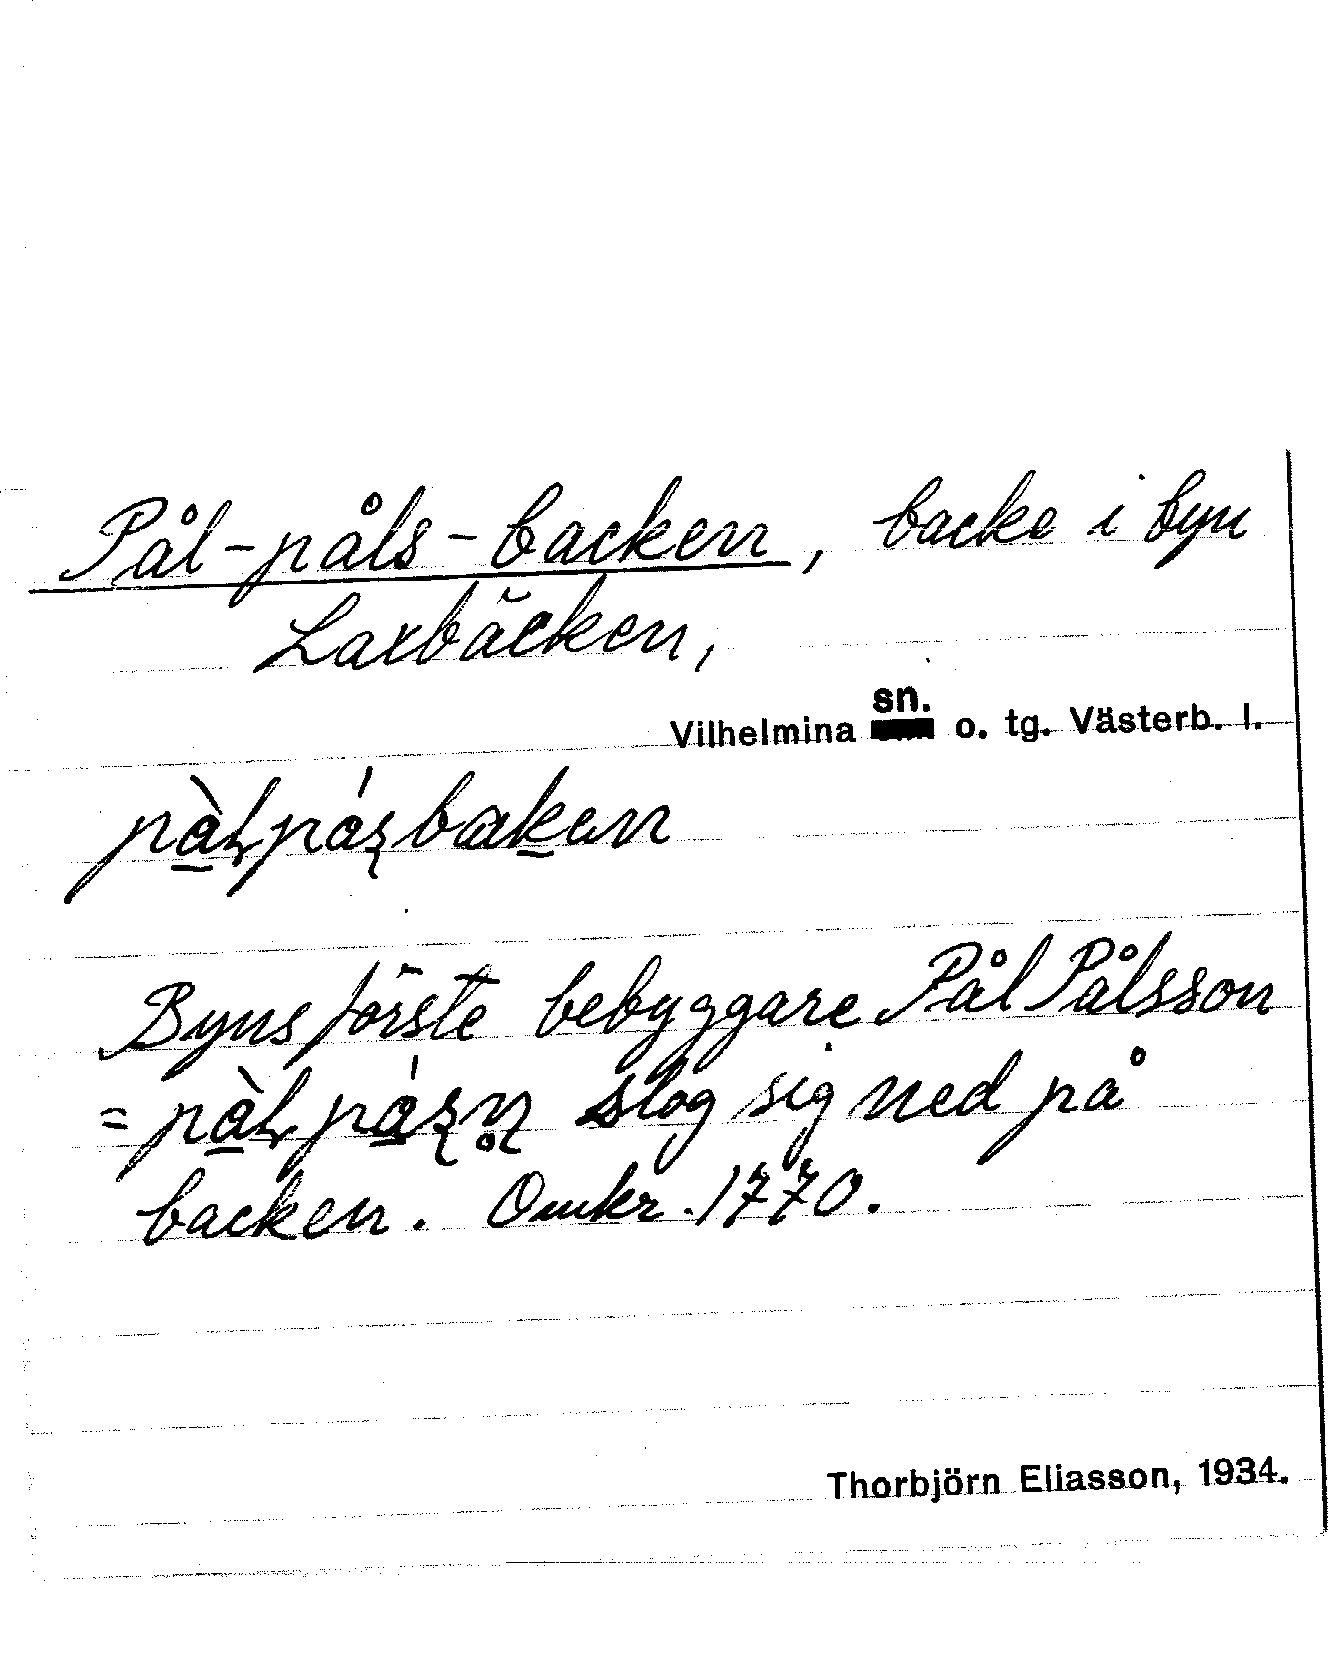 Pål-påls-backen, backe i byn
Laxbäcken,
Vilhelmina sn. o. tg. Västerb. l.
Byns förste bebyggare Pål Pålsson
= slog sig ned på
backen. Omkr. 1770.
Thorbjörn Eliasson, 1934.